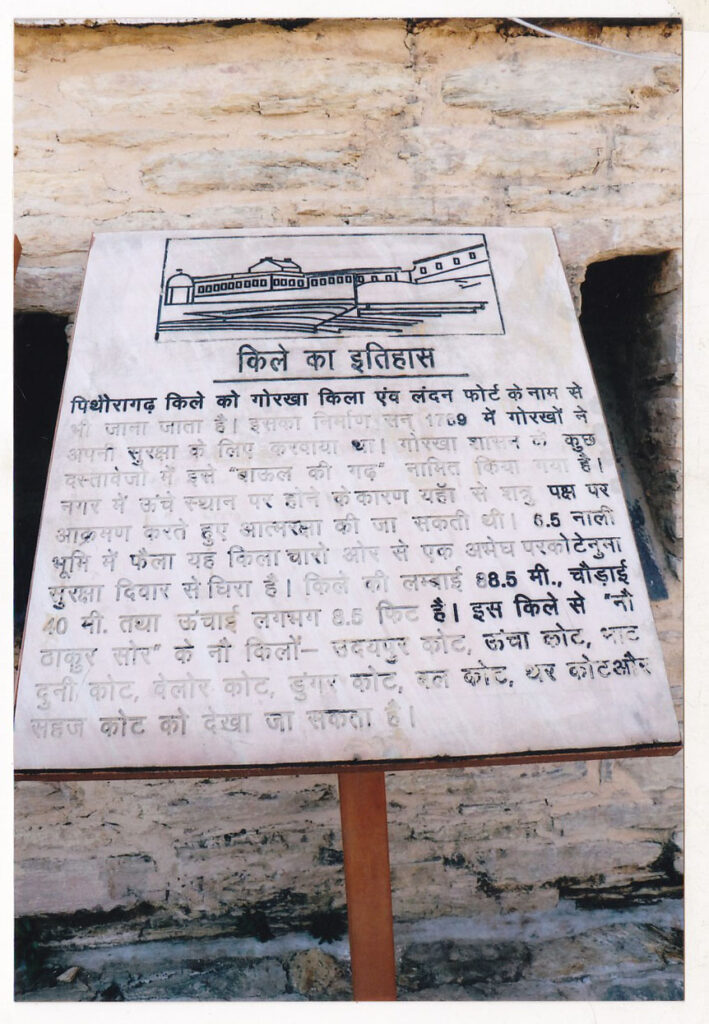 किले का इतिहास
पिथौरागढ़ किले को गोरखा किला एंव लंदन फोर्ट के नाम से
भी जाना जाता है। इसका निर्माण सन् 1789 में गोरखों ने
अपनी सुरक्षा के लिए करवाया था। गोरखा शासन के कुछ
दस्तावेजों में इसे "बाऊल की गढ़" नामित किया गया है।
नगर में ऊंचे स्थान पर होने के कारण यहाँ से शत्रु पक्ष पर
आक्रमण करते हुए आत्मरक्षा की जा सकती थी। 6.5 नाली
भूमि में फैला यह किला चारो ओर से एक अभेघ परकोटेनुमा
सुरक्षा दिवार से घिरा है। किले की लम्बाई 88.5 मी., चौड़ाई
40 मी. तथा ऊंचाई लगभग 8.5 फिट है। इस किले से "नौ
ठाकुर सोर" के नौ किलों– उदयपुर कोट, ऊंचा कोट, भाट
दुनी कोट, बेलोर कोट, डुंगर कोट, कोट, थर कोट और
सहज कोट को देखा जा सकता है।